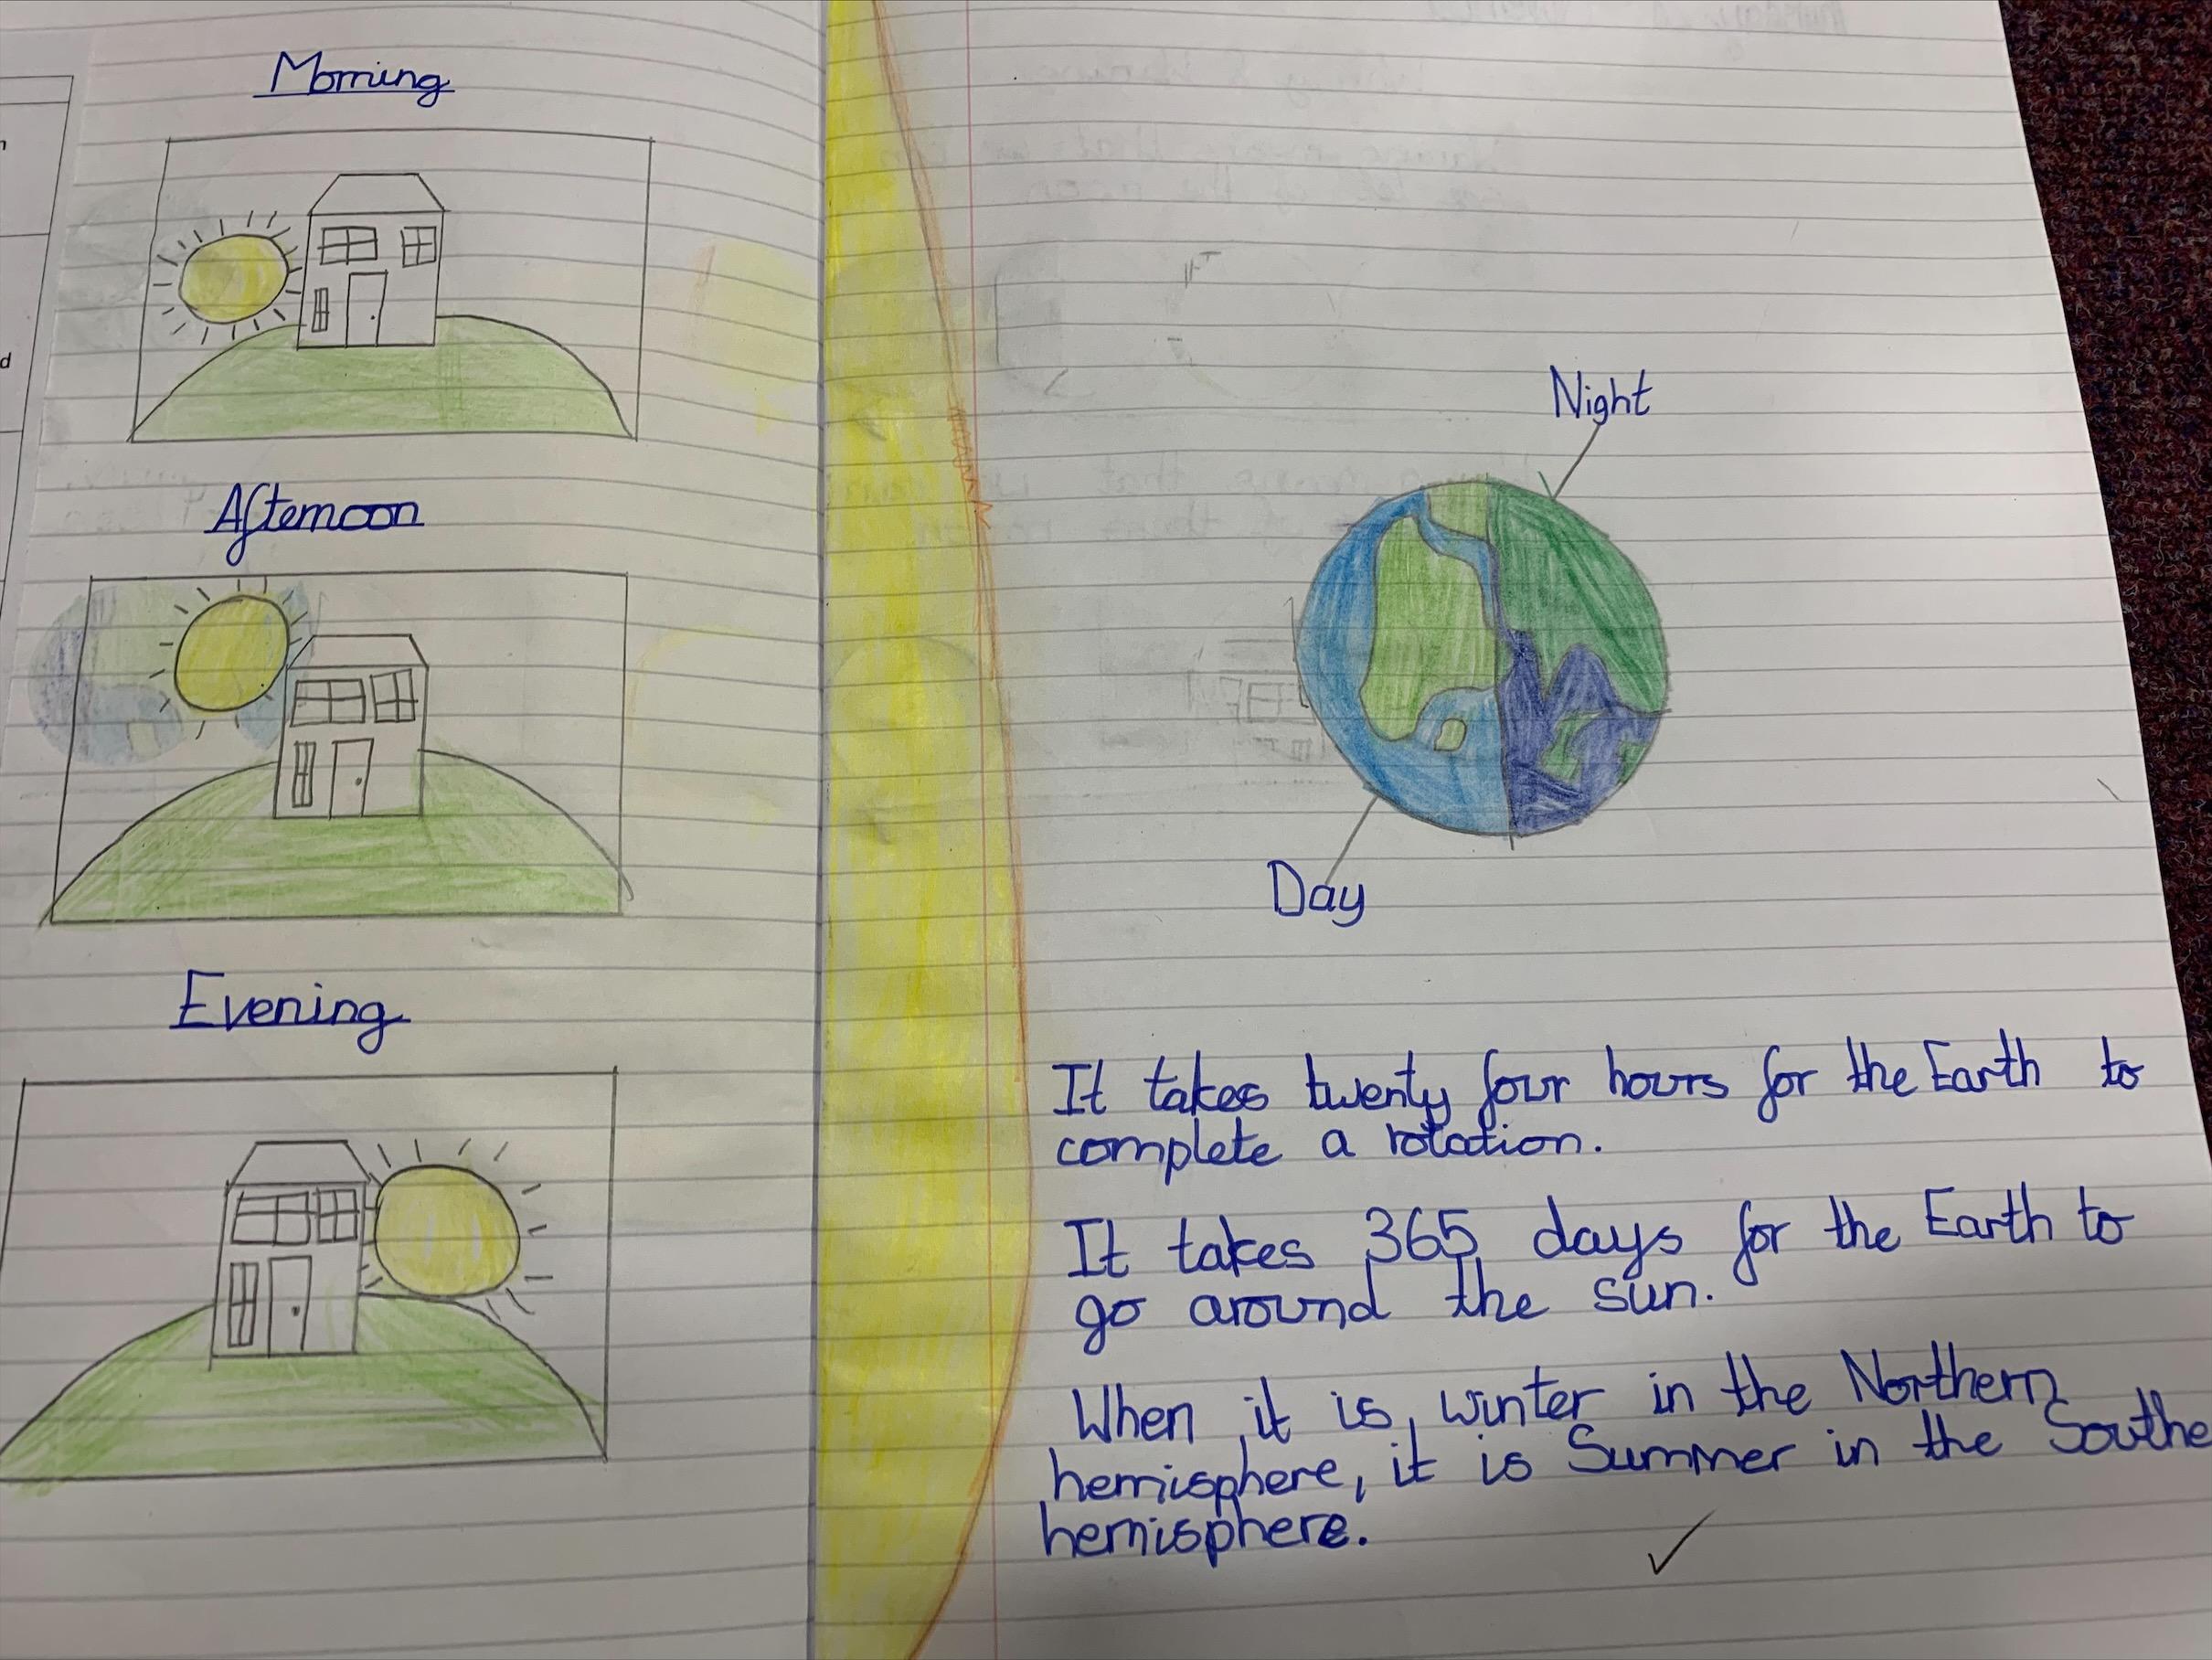 Morning
Afternoon
Evening
Night
Day
It takes twenty four hours for the Earth to
complete a rotation.
It takes 365 days for the Earth to
go around the sun.
When it is winter in the Northern
hemisphere, it is Summer in the Southe
hemisphere.